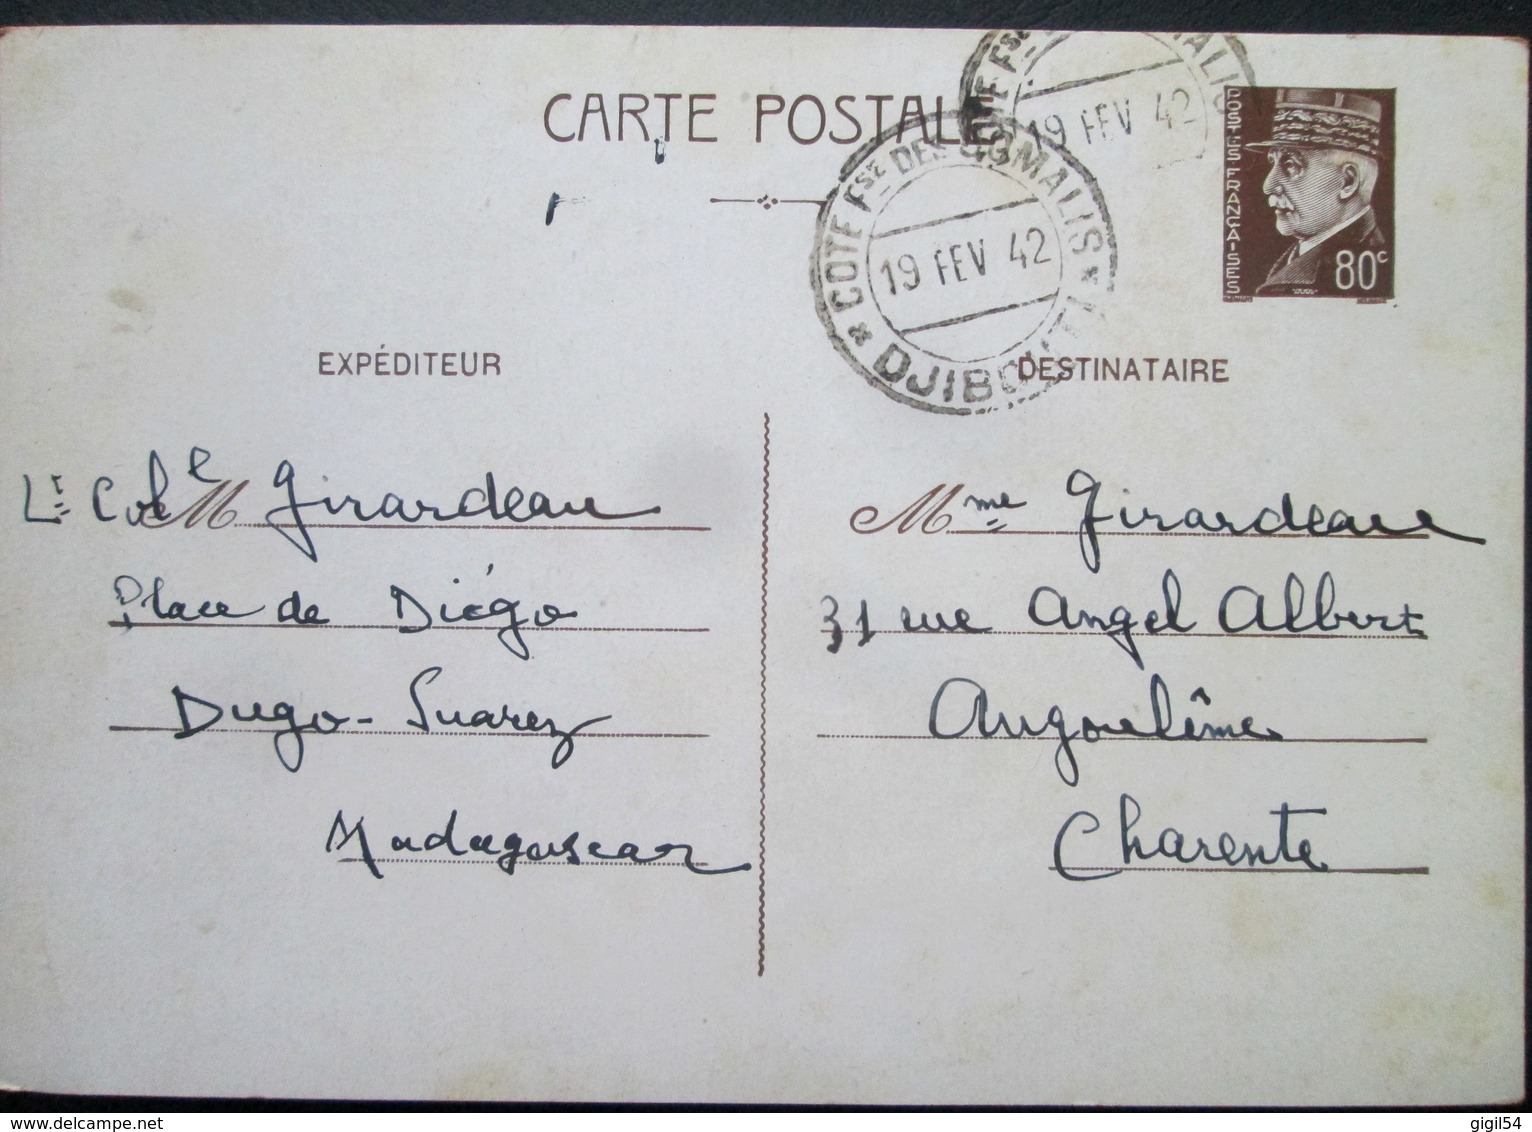 CARTE POSTALE
COTE Fse DES SOMALIS
19 FEV 42
COTE Fse DES SOMALIS
19 FEV 42
* DJIBOUTI *
POSTES FRANÇAISES
80c
EXPÉDITEUR
DESTINATAIRE
Lt Colel M Girardeau
Place de Diégo
Diego-Suarez
Madagascar
Mme Girardeau
31 rue Angel Albert
Angoulême
Charente
gigil54